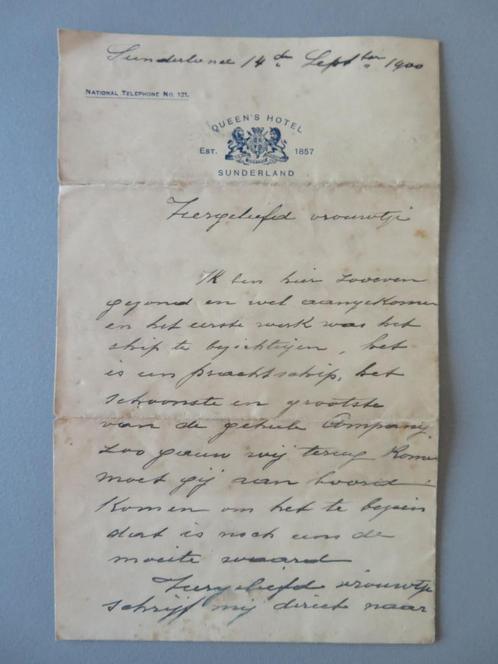 Sunderland 14 de Septber 1900
NATIONAL TELEPHONE No. 121.
QUEEN'S HOTEL
EST. 1857
SUNDERLAND
Zeergeliefd vrouwtje
Ik ben hier zooeven
gezond en wel aangekomen
en het eerste werk was het
ship te bezichtigen, het
is een prachtschip, het
schoonste en grootste
van de geheele Company.
Zoo gauw wij terug komen
moet gij aan boord
komen om het te bezien
dat is noch eens de
moeite waard
Zeergeliefd vrouwtje
schrijf mij direct naar